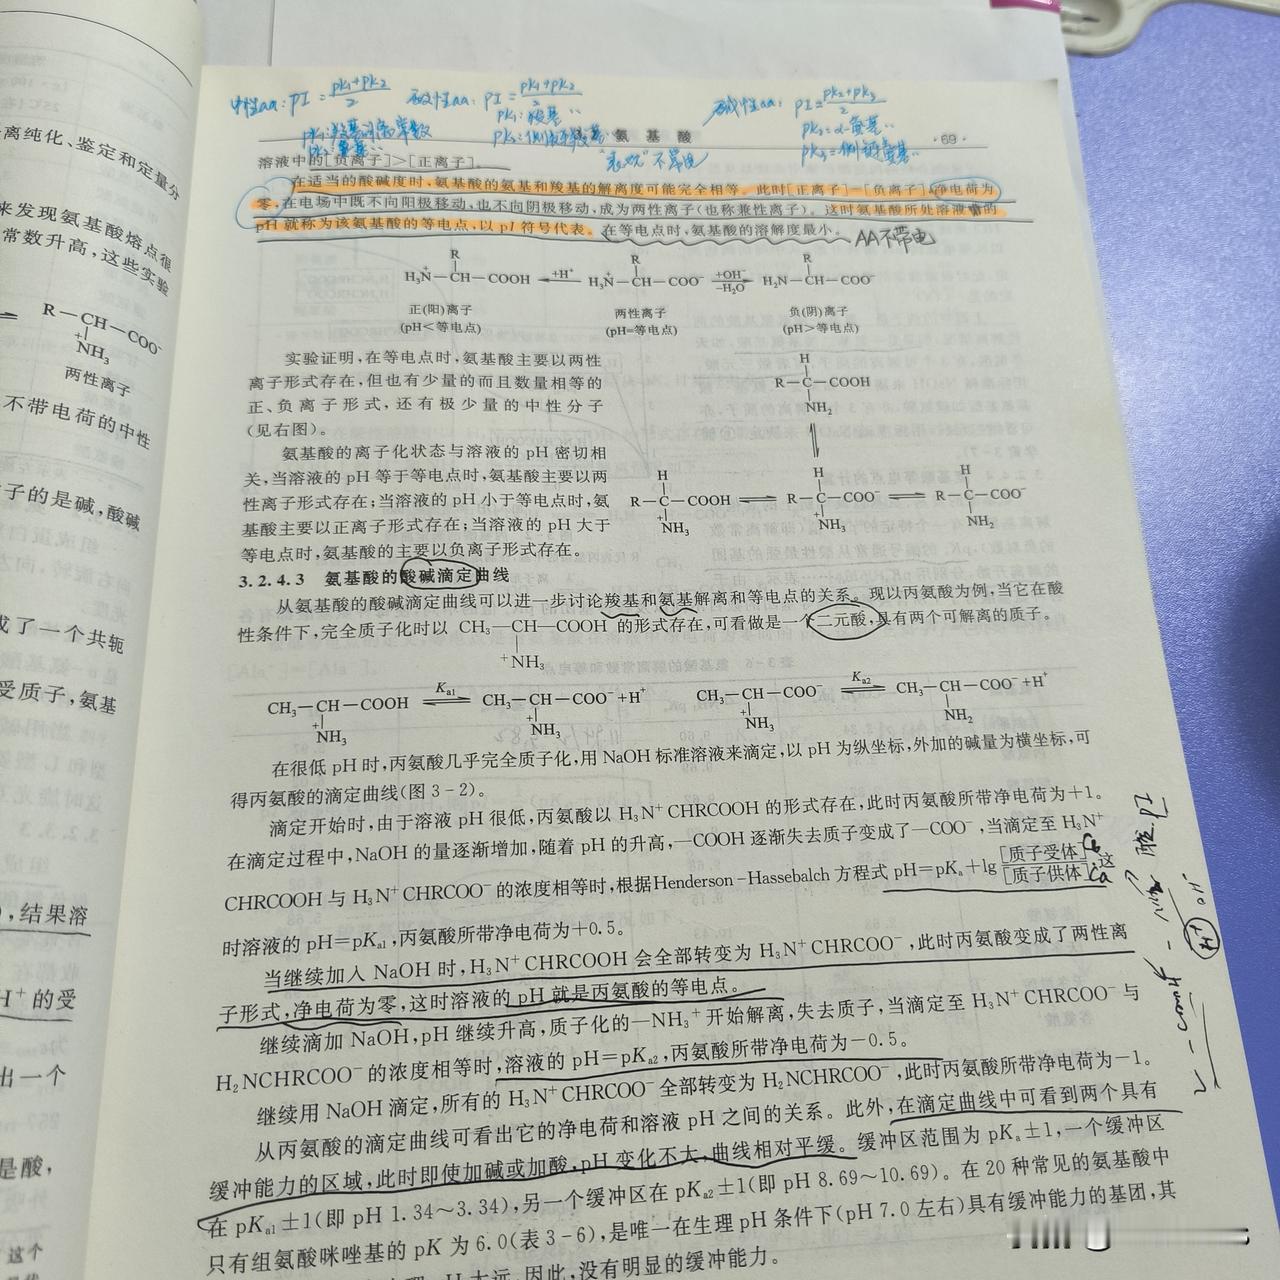 中性aa: PI = (pk1+pk2)/2 酸性aa: PI = (pk1+pk2)/2 碱性aa: PI = (pk2+pk3)/2
pk1: 羧基 pk2: α-氨基
pk3=侧链氨基
氨基酸 ·69·
"表观"不带电
溶液中的[负离子]>[正离子]。
在适当的酸碱度时,氨基酸的氨基和羧基的解离度可能完全相等。此时[正离子]=[负离子],净电荷为
零,在电场中既不向阳极移动,也不向阴极移动,成为两性离子(也称兼性离子)。这时氨基酸所处溶液的
pH 就称为该氨基酸的等电点,以 pI 符号代表。在等电点时,氨基酸的溶解度最小。 AA不带电
R R R
H₃N⁺—CH—COOH +H⁺ H₃N⁺—CH—COO⁻ +OH⁻ −H₂O H₂N—CH—COO⁻
正(阳)离子 两性离子 负(阴)离子
(pH<等电点) (pH=等电点) (pH>等电点)
实验证明,在等电点时,氨基酸主要以两性
离子形式存在,但也有少量的而且数量相等的
正、负离子形式,还有极少量的中性分子
(见右图)。
氨基酸的离子化状态与溶液的 pH 密切相
关,当溶液的 pH 等于等电点时,氨基酸主要以两
性离子形式存在;当溶液的 pH 小于等电点时,氨
基酸主要以正离子形式存在;当溶液的 pH 大于
等电点时,氨基酸的主要以负离子形式存在。
H
R—C—COOH
NH₂
H H H
R—C—COOH R—C—COO⁻ R—C—COO⁻
⁺NH₃ ⁺NH₃ NH₂
3.2.4.3 氨基酸的酸碱滴定曲线
从氨基酸的酸碱滴定曲线可以进一步讨论羧基和氨基解离和等电点的关系。现以丙氨酸为例,当它在酸
性条件下,完全质子化时以 CH₃—CH—COOH 的形式存在,可看做是一个二元酸,具有两个可解离的质子。
⁺NH₃
CH₃—CH—COOH Ka1 CH₃—CH—COO⁻+H⁺ CH₃—CH—COO⁻ Ka2 CH₃—CH—COO⁻+H⁺
⁺NH₃ ⁺NH₃ ⁺NH₃ NH₂
在很低 pH 时,丙氨酸几乎完全质子化,用 NaOH 标准溶液来滴定,以 pH 为纵坐标,外加的碱量为横坐标,可
得丙氨酸的滴定曲线(图 3-2)。
滴定开始时,由于溶液 pH 很低,丙氨酸以 H₃N⁺CHRCOOH 的形式存在,此时丙氨酸所带净电荷为+1。
在滴定过程中,NaOH 的量逐渐增加,随着 pH 的升高,—COOH 逐渐失去质子变成了—COO⁻,当滴定至 H₃N⁺
CHRCOOH 与 H₃N⁺CHRCOO⁻ 的浓度相等时,根据Henderson-Hassebalch 方程式 pH=pKa+lg [质子受体]/[质子供体],这
时溶液的 pH=pKa1,丙氨酸所带净电荷为+0.5。
当继续加入 NaOH 时,H₃N⁺CHRCOOH 会全部转变为 H₃N⁺CHRCOO⁻,此时丙氨酸变成了两性离
子形式,净电荷为零,这时溶液的 pH 就是丙氨酸的等电点。
继续滴加 NaOH,pH 继续升高,质子化的—NH₃⁺开始解离,失去质子,当滴定至 H₃N⁺CHRCOO⁻ 与
H₂NCHRCOO⁻ 的浓度相等时,溶液的 pH=pKa2,丙氨酸所带净电荷为−0.5。
继续用 NaOH 滴定,所有的 H₃N⁺CHRCOO⁻ 全部转变为 H₂NCHRCOO⁻,此时丙氨酸所带净电荷为−1。
从丙氨酸的滴定曲线可看出它的净电荷和溶液 pH 之间的关系。此外,在滴定曲线中可看到两个具有
缓冲能力的区域,此时即使加碱或加酸,pH 变化不大,曲线相对平缓。缓冲区范围为 pKa±1,一个缓冲区
在 pKa1±1(即 pH 1.34~3.34),另一个缓冲区在 pKa2±1(即 pH 8.69~10.69)。在 20 种常见的氨基酸中
只有组氨酸咪唑基的 pK 为 6.0(表 3-6),是唯一在生理 pH 条件下(pH 7.0 左右)具有缓冲能力的基团,其
因此,没有明显的缓冲能力。
离纯化、鉴定和定量分
来发现氨基酸熔点很
常数升高,这些实验
R—CH—COO⁻
⁺NH₃
两性离子
不带电荷的中性
子的是碱,酸碱
成了一个共轭
受质子,氨基
,结果溶
H⁺ 的受
出一个
是酸,
这个